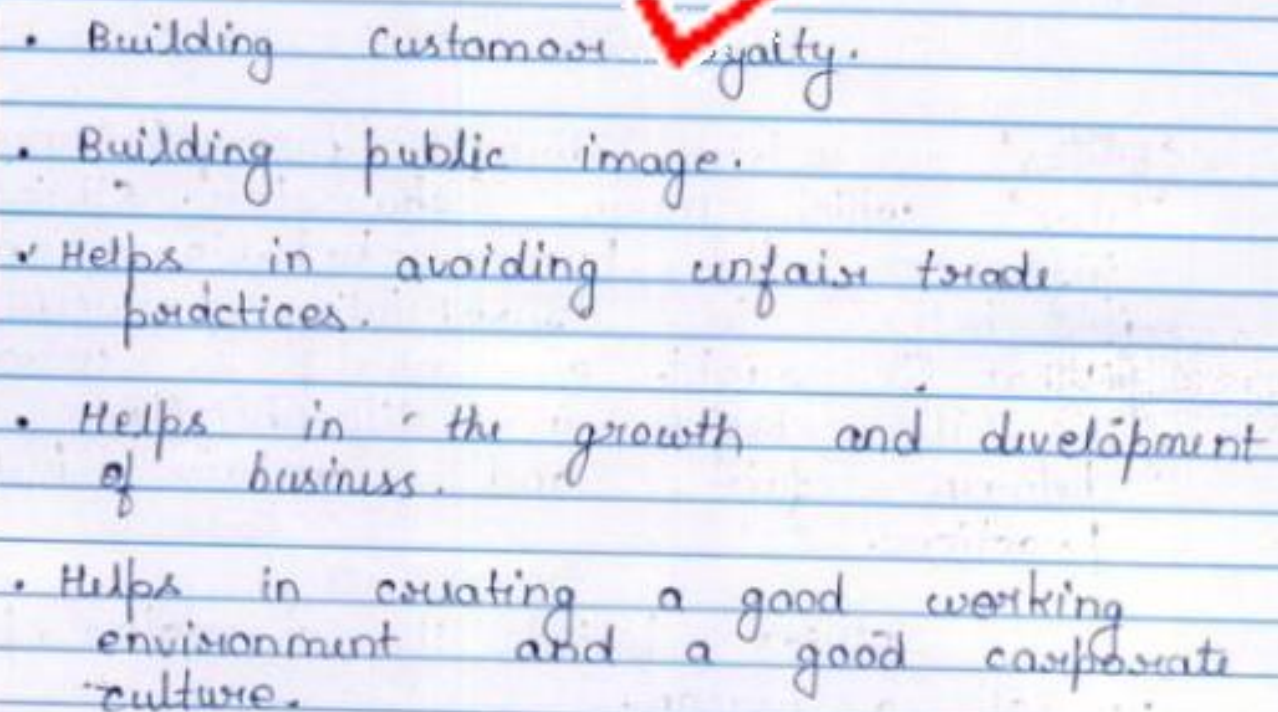 • Building Customer yalty.
• Building public image.
• Helps in avoiding unfair trade
practices.
• Helps in the growth and development
of business.
• Helps in creating a good working
environment and a good corporate
culture.